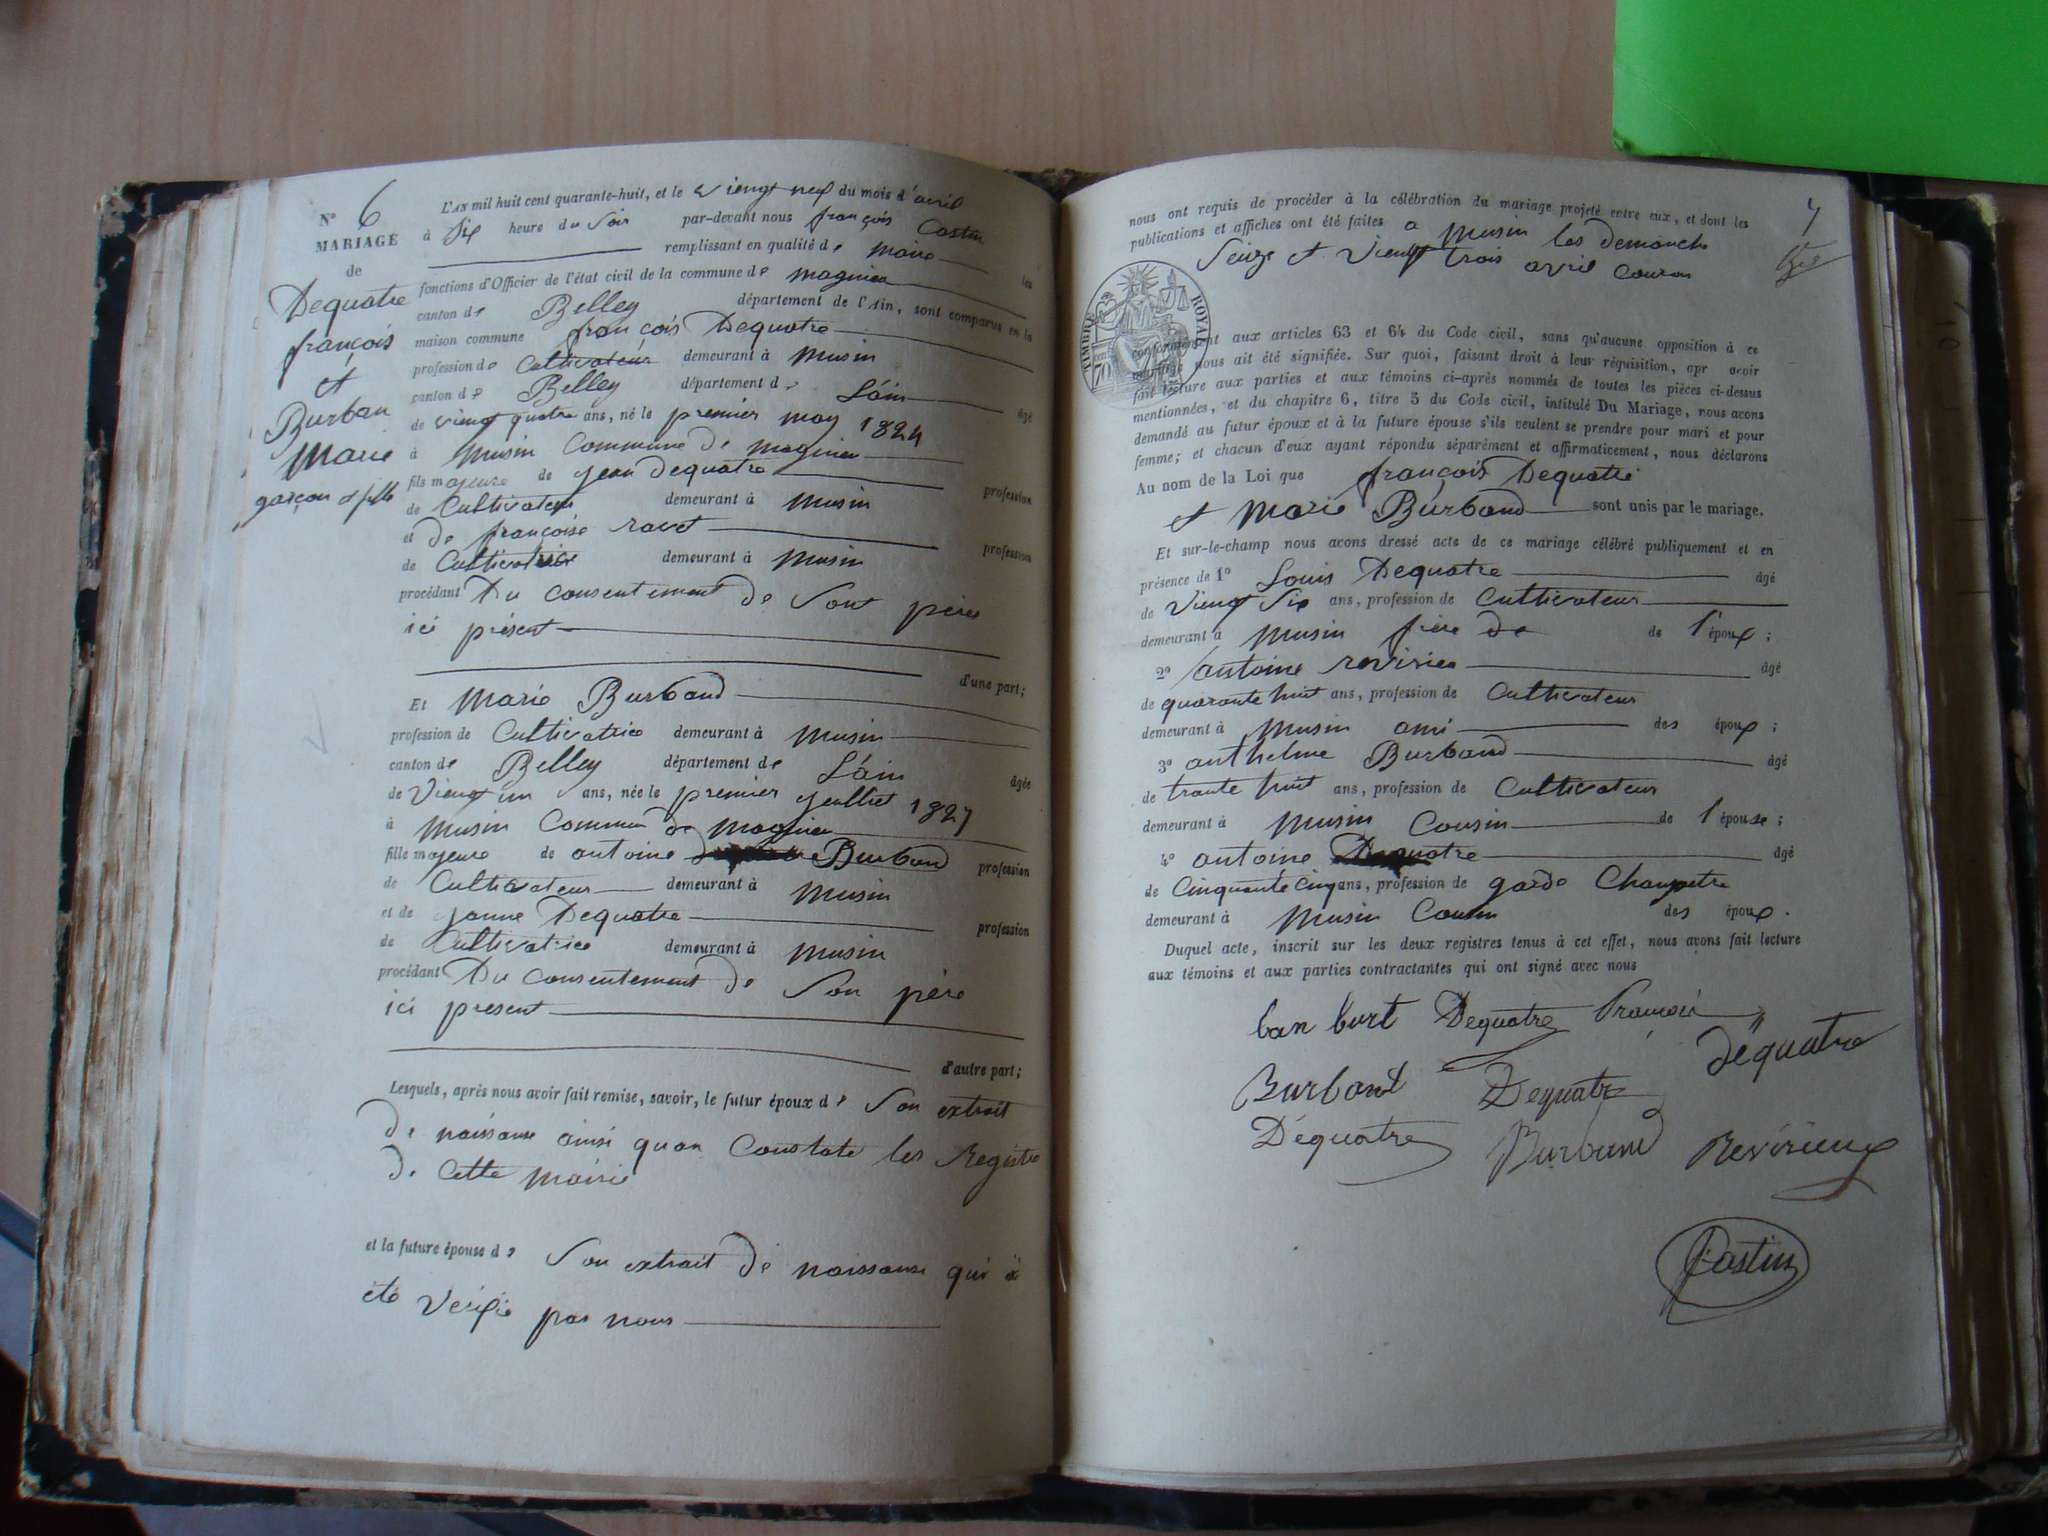 N° 6
MARIAGE
de
Dequatre
françois
et
Burban
Marie
garçon et fille
L'AN mil huit cent quarante-huit, et le viengt neuf du mois d'avril
à Six heure du Soir par-devant nous françois Castin
remplissant en qualité de maire les
fonctions d'Officier de l'état civil de la commune de magnieu
canton de Belley département de l'Ain, sont comparus en la
maison commune françois Dequatre
profession de Cultivateur demeurant à musin
canton de Belley département de L'áin âgé
de viengt quatre ans, né le premier may 1824
à musin Commune de magnieu
fils majeure de jean dequatre profession
de Cultivateur demeurant à musin
et de françoise ravet profession
de Cultivatrice demeurant à musin
procédant Du consentement de Sont père
ici présent
d'une part;
Et Marie Burband
profession de Cultivatrice demeurant à musin
canton de Belley département de L'áin âgée
de Viengt un ans, née le premier juellet 1827
à musin Commun de magnieu
fille majeure de antoine Burband profession
de Cultivateur demeurant à musin
et de janne Dequatre profession
de Cultivatrice demeurant à musin
procédant Du consentement de Son père
ici present
d'autre part;
Lesquels, après nous avoir fait remise, savoir, le futur époux de Son extrait
de naissance ainsi quan Constate les Registre
de cette mairie
et la future épouse de Son extrait de naissance qui á
été verifié par nous
7
nous ont requis de procéder à la célébration du mariage projeté entre eux, et dont les
publications et affiches ont été faites a musin les demanche
Seize et vieugt trois avril couran
TIMBRE ROYAL
70
conformément aux articles 63 et 64 du Code civil, sans qu'aucune opposition à ce
mariage nous ait été signifiée. Sur quoi, faisant droit à leur réquisition, apr avoir
fait lecture aux parties et aux témoins ci-après nommés de toutes les pièces ci-dessus
mentionnées, et du chapitre 6, titre 5 du Code civil, intitulé Du Mariage, nous avons
demandé au futur époux et à la future épouse s'ils veulent se prendre pour mari et pour
femme; et chacun d'eux ayant répondu séparément et affirmaticement, nous déclarons
Au nom de la Loi que françois Dequatre
et Marie Burband sont unis par le mariage.
Et sur-le-champ nous avons dressé acte de ce mariage célébré publiquement et en
présence de 1° Louis Dequatre âgé
de Viengt Six ans, profession de Cultivateur
demeurant à musin frère de de l'époux;
2° antoine revirieu âgé
de quarante huit ans, profession de Cultivateur
demeurant à musin ami des époux;
3° anthelme Burband âgé
de trante huit ans, profession de Cultivateur
demeurant à musin Cousin de l'épouse;
4° antoine Dequatre âgé
de Cinquante cinq ans, profession de garde Champetre
demeurant à musin Cousin des époux.
Duquel acte, inscrit sur les deux registres tenus à cet effet, nous avons fait lecture
aux témoins et aux parties contractantes qui ont signé avec nous
ban burt Dequatre françois
déquatre
Burbant Dequatre
Déquatre Burband Révirieux
Castin